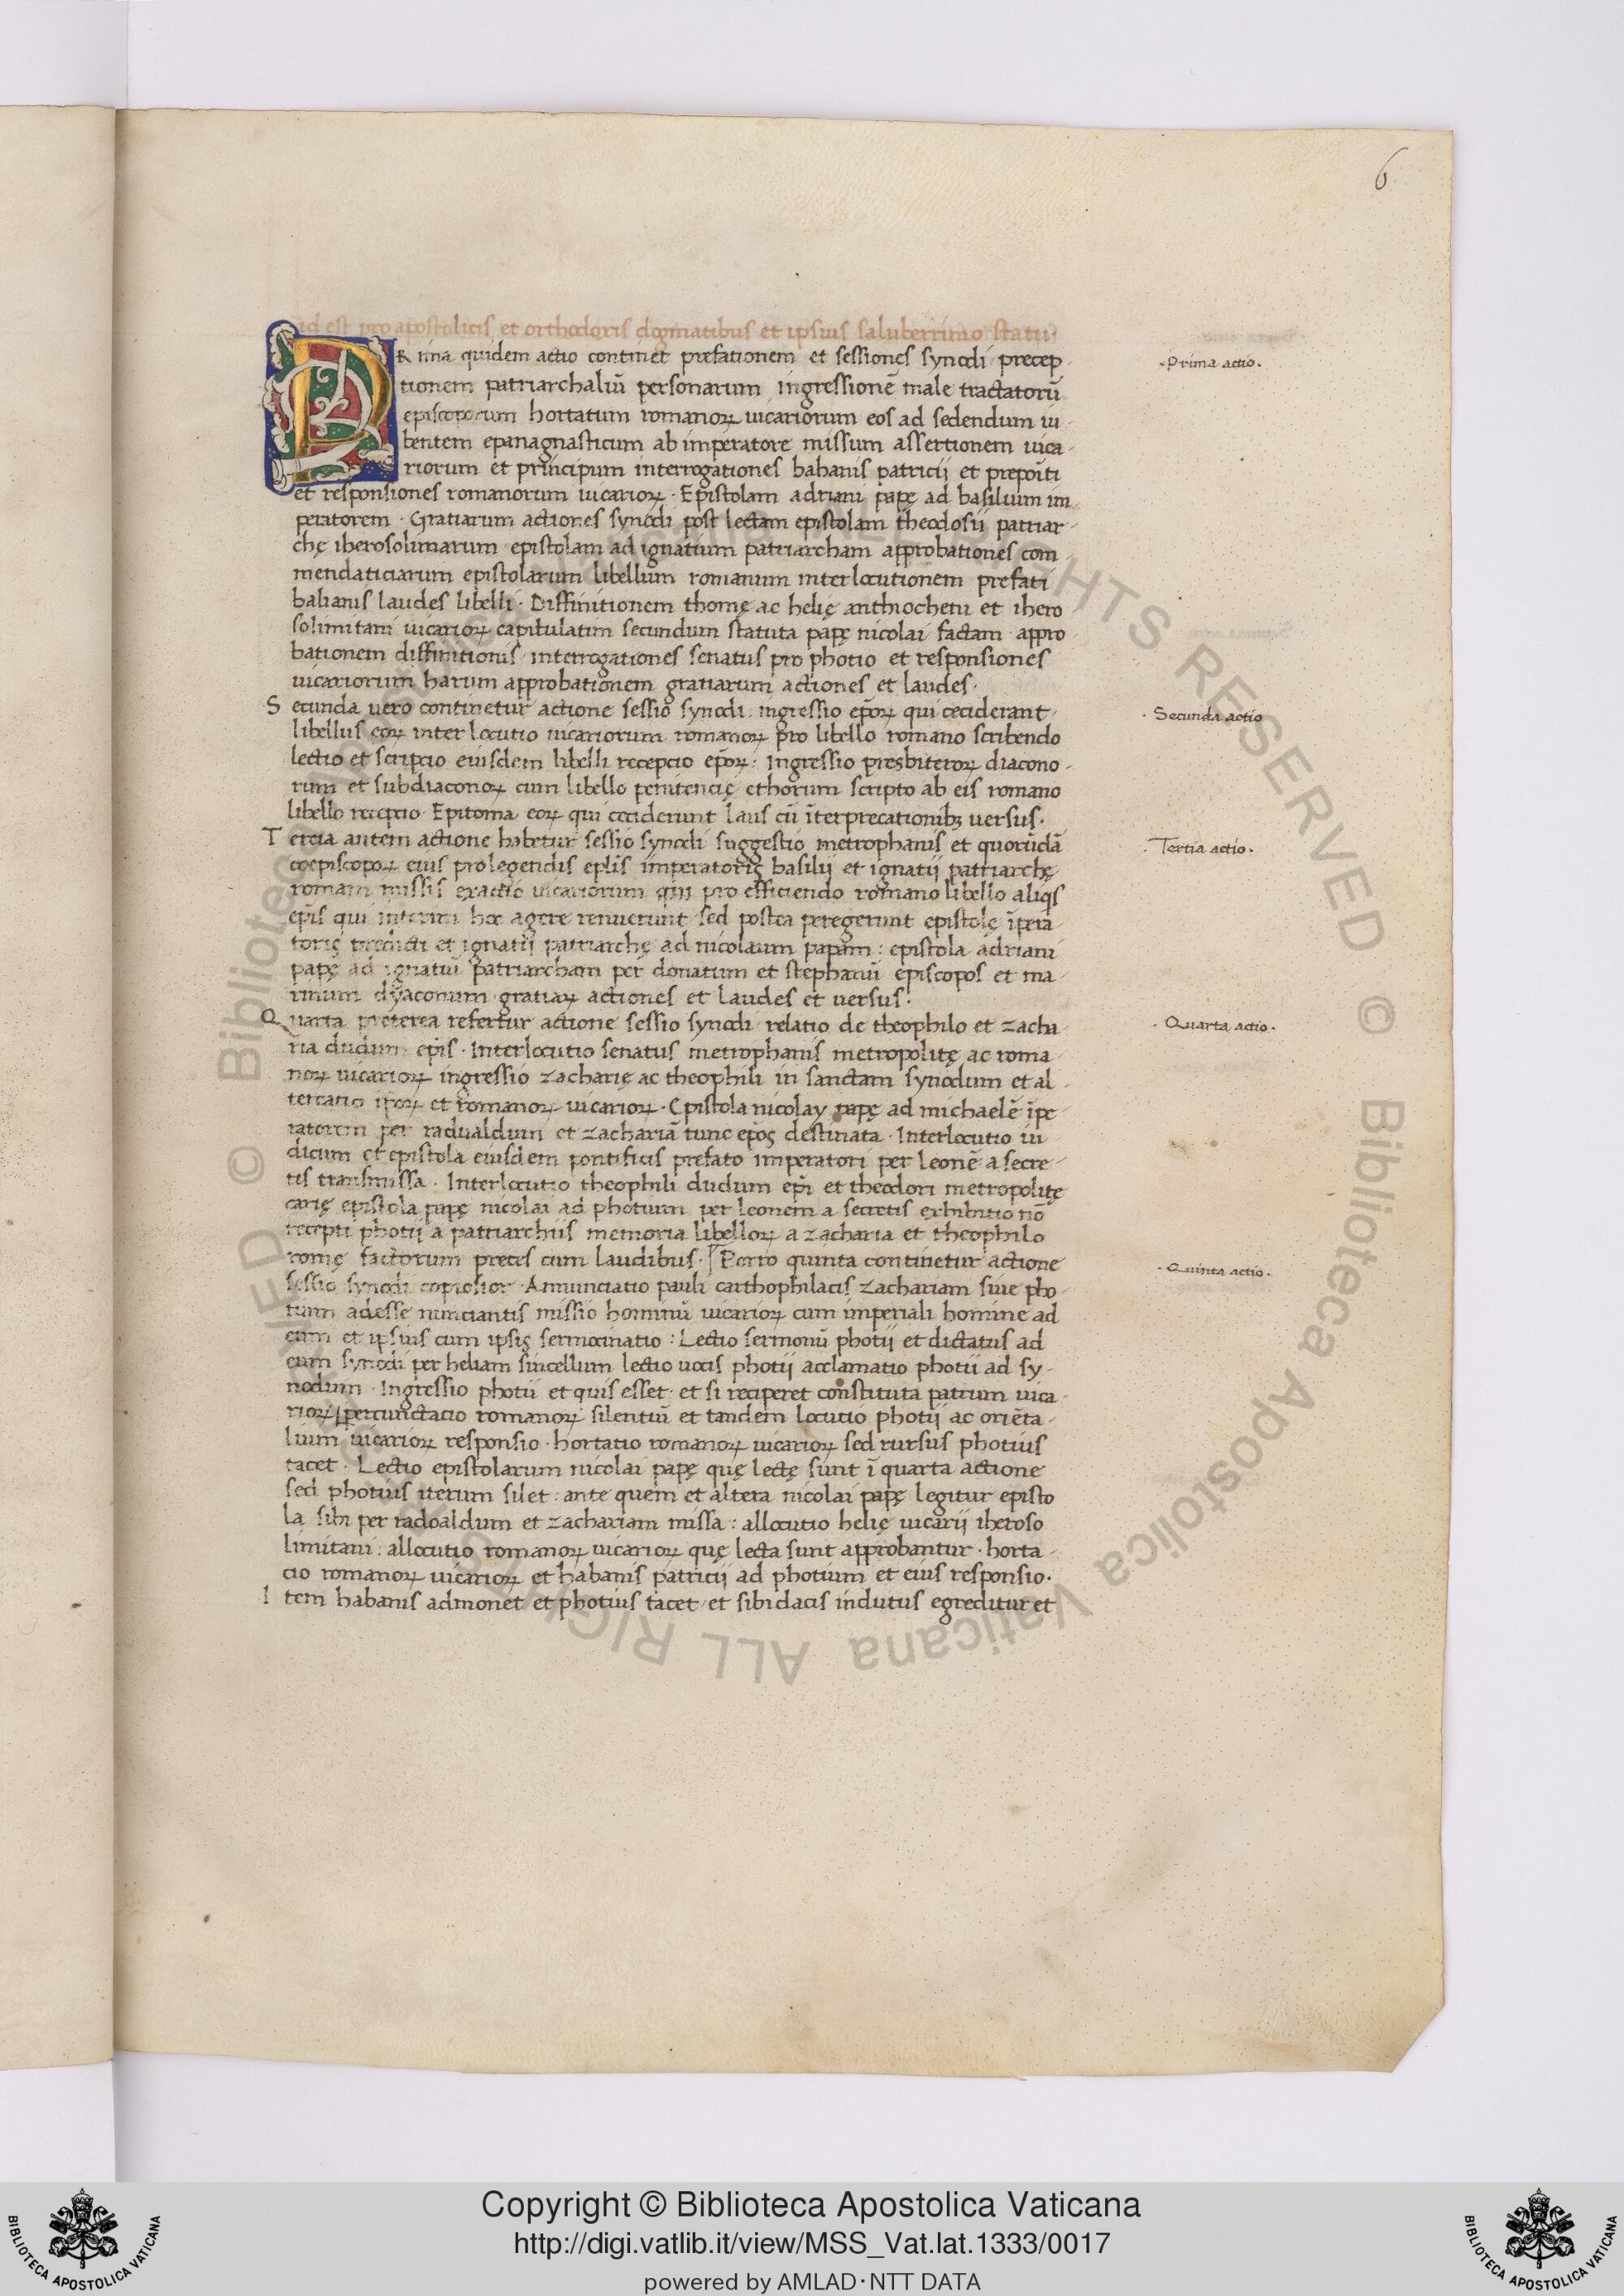 6
id est pro apostolicis et orthodoxis dogmatibus et ipsius saluberrimo statu·
PRima quidem actio continet prefationem et sessiones synodi precep-
tionem patriarchaliū personarum ingressionē male tractatorū
episcoporum hortatum romanoꝝ uicariorum eos ad sedendum iu-
bentem epanagnasticum ab imperatore missum assertionem uica-
riorum et principum interrogationes bahanis patricij et prepoīti
et responsiones romanorum uicarioꝝ · Epistolam adriani papę ad basilium im
peratorem · Gratiarum actiones synodi post lectam epistolam theodosii patriar-
chę iherosolimarum epistolam ad ignatium patriarcham approbationes com-
mendaticiarum epistolarum libellum romanum interlocutionem prefati
bahanis laudes libelli · Diffinitionem thomę ac helię anthiocheni et ihero-
solimitani uicarioꝝ capitulatim secundum statuta papę nicolai factam · appro-
bationem diffinitionis interrogationes senatus pro photio et responsiones
uicariorum harum approbationem gratiarum actiones et laudes·
Secunda uero continetur actione sessio synodi ingressio ep̄oꝝ qui ceciderant
libellus eoꝝ inter locutio uicariorum romanoꝝ pro libello romano scribendo
lectio et scriptio eiusdem libelli recepcio ep̄oꝝ: Ingressio presbiteroꝝ diacono-
rum et subdiaconoꝝ cum libello penitencię et horum scripto ab eis romano
libello recepcio· Epitoma eoꝝ qui ceciderunt laus cū īterprecationibꝫ uersus·
Tercia autem actione habetur sessio synodi suggestio metrophanis et quorūdā
coepiscopoꝝ eius pro legendis epl̄is imperatorię basilij et ignatij patriarchę
romam missis exactio uicariorum qui pro efficiendo romano libello aliqs
ep̄is qui interim hoc agere renuerunt sed postea peregerunt epistolę īpera-
torię predicti et ignatij patriarchę ad nicolaum papam: epistola adriani
papę ad ignatiū patriarcham per donatum et stephanū episcopos et ma-
rinum dyaconum gratiaꝝ actiones et laudes et uersus:
Quarta preterea refertur actione sessio synodi relatio de theophilo et zacha-
ria dudum ep̄is · Interlocutio senatus metrophanis metropolitę ac roma-
noꝝ uicarioꝝ ingressio zacharię ac theophili in sanctam synodum et al-
tercatio ip̄oꝝ et romanoꝝ uicarioꝝ · Epistola nicolay papę ad michaelē īpe-
ratorem per radualdum et zachariā tunc ep̄oς destinata · Interlocutio iu-
dicum et epistola eiusdem pontificis prefato imperatori per leonē a secre-
tis transmissa · Interlocutio theophili dudum ep̄i et theodori metropolitę
carię epistola papę nicolai ad photium per leonem a secretis exhibitio nō
recepti photij a patriarchiis memoria libelloꝝ a zacharia et theophilo
romę factorum preces cum laudibus· Porro quinta continetur actione
sessio synodi copiosior · Annunciatio pauli carthophilacis zachariam siue pho-
tium adesse nunciantis missio hominū uicarioꝝ cum imperiali homine ad
eum et ipsius cum ipsis sermocinatio : Lectio sermonū photij et dictatus ad
eum synodi per heliam sincellum lectio uocis photij acclamatio photii ad sy-
nodum · Ingressio photii et quis esset· et si reciperet constituta patrum uica-
rioꝝ percunctacio romanoꝝ silentiū et tandem locutio photij ac oriēta-
lium uicarioꝝ responsio · hortatio romanoꝝ uicarioꝝ sed rursus photius
tacet · Lectio epistolarum nicolai papę quę lectę sunt ī quarta actione
sed photius iterum silet : ante quem et altera nicolai papę legitur episto
la sibi per radoaldum et zachariam missa : allocutio helię uicarij iheroso
limitani : allocutio romanoꝝ uicarioꝝ quę lecta sunt approbantur · horta-
cio romanoꝝ uicarioꝝ et habanis patricij ad photium et eius responsio·
Item habanis admonet et photius tacet et sibi dacis indutus egreditur et
·Prima actio·
·Secunda actio
·Tertia actio·
·Quarta actio·
·Quinta actio·
Copyright © Biblioteca Apostolica Vaticana
http://digi.vatlib.it/view/MSS_Vat.lat.1333/0017
powered by AMLAD·NTT DATA
BIBLIOTECA APOSTOLICA VATICANA
BIBLIOTECA APOSTOLICA VATICANA